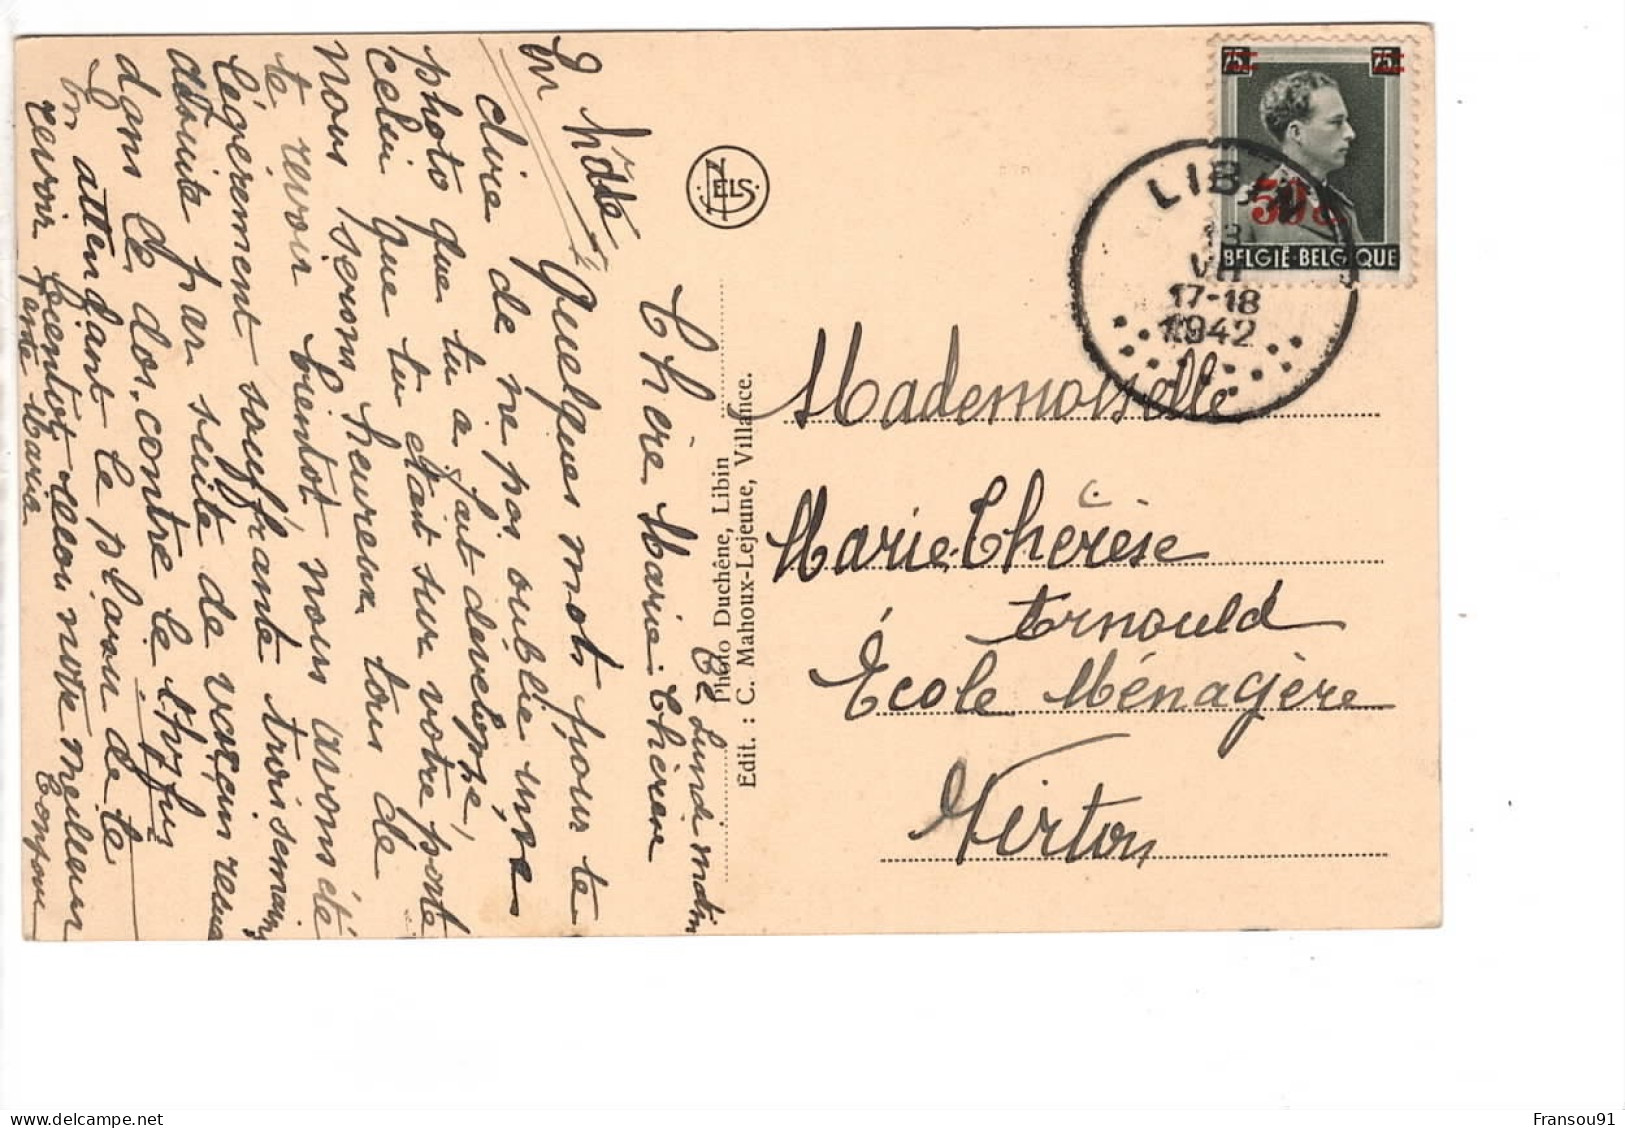 Ce Lundi matin
Chère Marie Thérèse
Quelques mots pour te
dire de ne pas oublié une
photo que tu a fait développé,
celui que tu était sur votre porte
nous serions heureux tous de
te revoir bientot, nous avons été
légèrement souffrante trois semaines
desuite par suite de
dans le dos, contre le
En attendant le plaisir de te
revoir bientot reçois notre meilleur
Tante Maria
En hâte
NELS
Photo Duchêne, Libin
Edit. : C. Mahoux-Lejeune, Villance.
75c 75c
50c
BELGIË-BELGIQUE
LIBIN
13
VII
17-18
1942
Mademoiselle
Marie-Thérèse
Arnould
École Ménagère
Virton
Fransou91